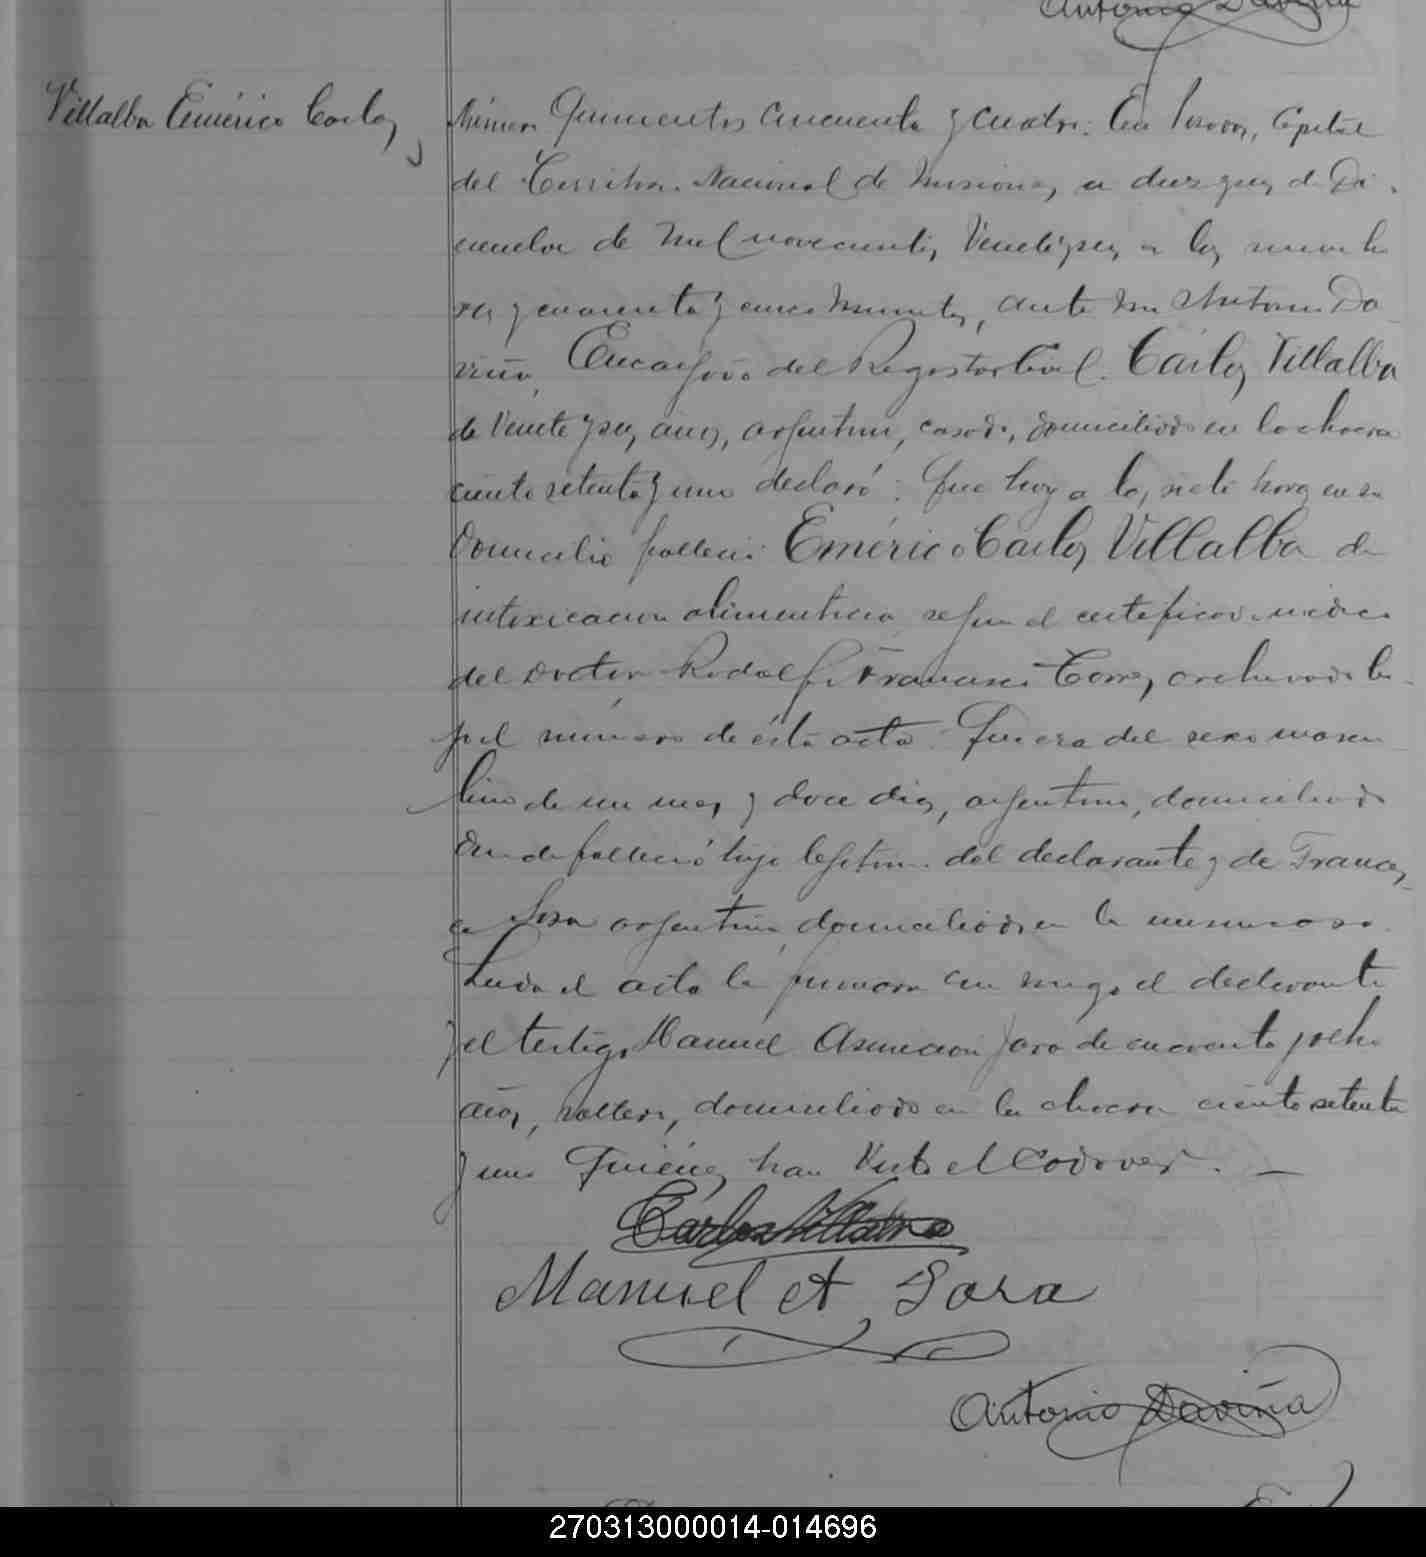 Antonio Daviña
Villalba Emérico Carlos
Número Quinientos cincuenta y cuatro: En Posadas, Capital
del Territorio Nacional de Misiones, a diez y seis de Di-
ciembre de mil novecientos Veinte y seis a las nueve ho
ras y cuarenta y cinco minutos, ante mi Antonio Da-
viña, Encargado del Registro Civil. Carlos Villalba
de Veinte y seis años, argentino, casado, domiciliado en la chacra
ciento setenta y uno declaró: Que hoy a las siete horas en su
Domicilio falleció: Emérico Carlos Villalba de
intoxicacion alimenticia segun el certificado médico
del Doctor Rodolfo Francisco Correa, archivado ba-
jo el número de ésta acta. Que era del sexo mascu
lino de un mes y doce dias, argentino, domiciliado
donde falleció hijo lejitimo del declarante y de Francis-
ca Sosa argentina, domiciliada en la misma casa.
Leida el acta la firmaron con migo el declarante
y el testigo Manuel Asuncion Jara de cuarenta y ocho
años, soltero, domiciliado en la chacra ciento setenta
y uno Quienes han Visto el Cadaver. —
Carlos Villalba
Manuel A Jara
Antonio Daviña
270313000014-014696